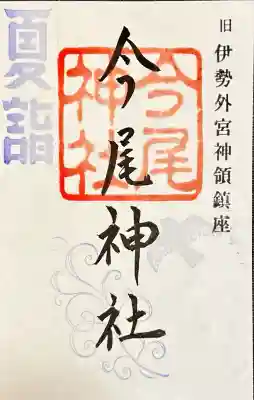 旧 伊勢外宮神領鎮座
今尾神社
今尾神社
夏詣